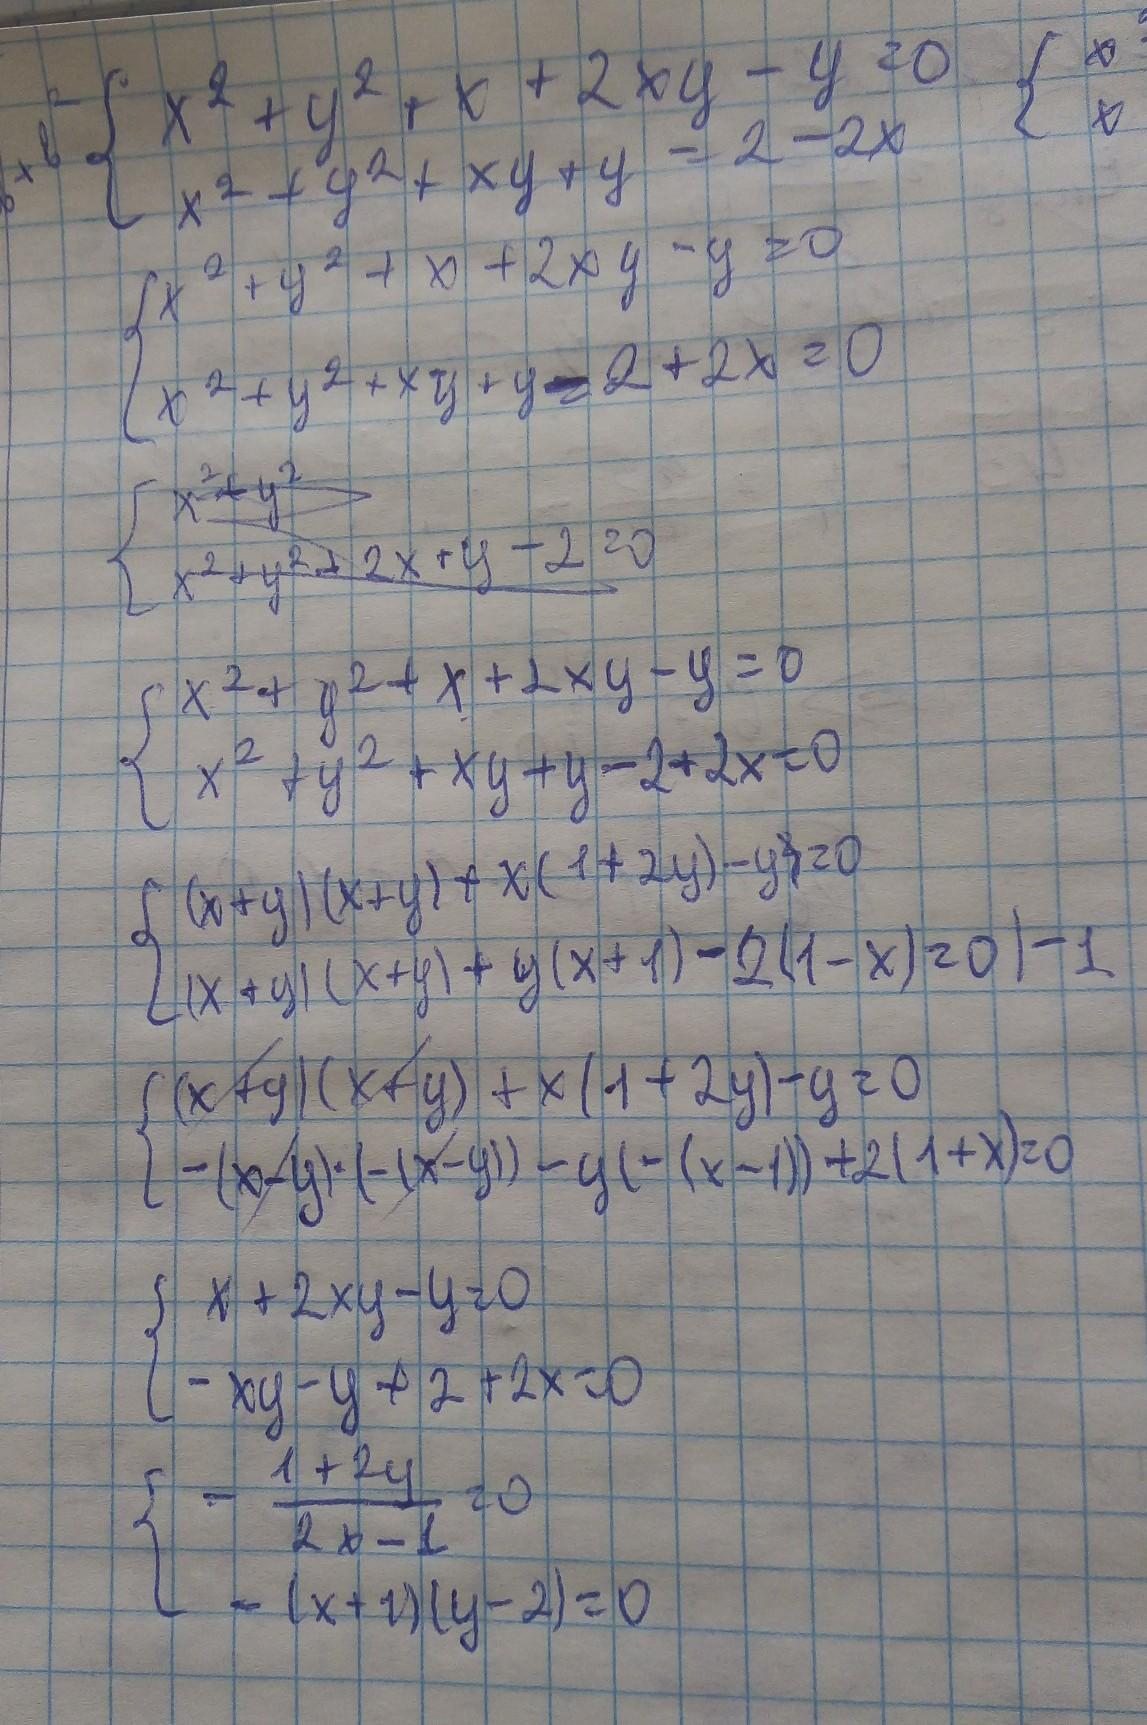 x² + y² + x + 2xy - y = 0
x² + y² + xy + y = 2 - 2x
x
x
x² + y² + x + 2xy - y = 0
x² + y² + xy + y - 2 + 2x = 0
x² + y²
x² + y² + 2x + y - 2 = 0
x² + y² + x + 2xy - y = 0
x² + y² + xy + y - 2 + 2x = 0
(x+y)(x+y) + x(1+2y) - y = 0
(x+y)(x+y) + y(x+1) - 2(1-x) = 0 | -1
(x+y)(x+y) + x(1+2y) - y = 0
-(x-y)·(-(x-y)) - y(-(x-1)) + 2(1+x) = 0
x + 2xy - y = 0
-xy - y + 2 + 2x = 0
- (1+2y)/(2x-1) = 0
-(x+1)(y-2) = 0